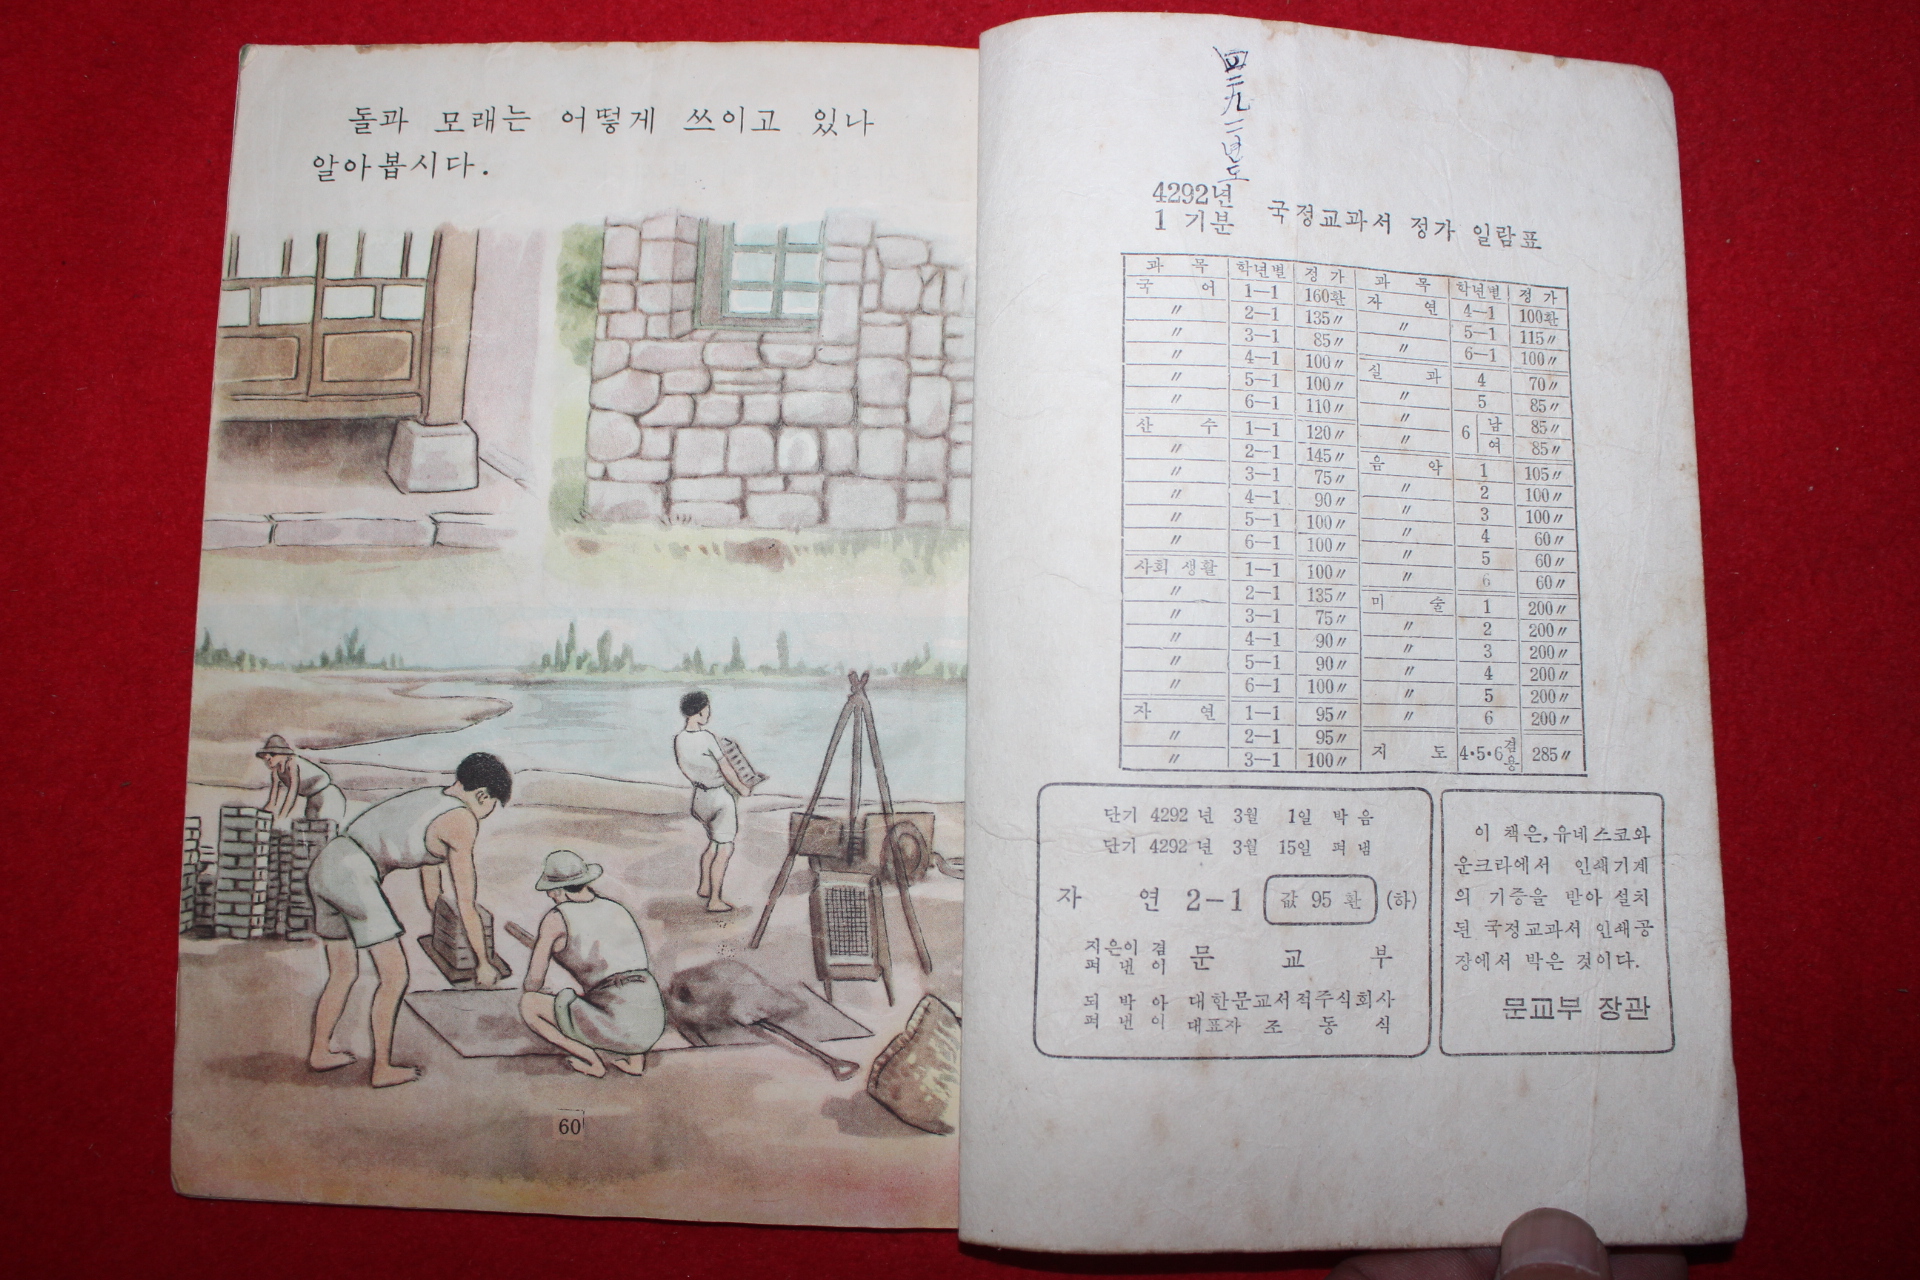 돌과 모래는 어떻게 쓰이고 있나
알아봅시다.
60
四二九二년도
4292년
1 기분 국정교과서 정가 일람표
과 목 학년별 정 가 과 목 학년별 정 가
국 어 1—1 160환 자 연 4—1 100환
〃 2—1 135〃 〃 5—1 115〃
〃 3—1 85〃 〃 6—1 100〃
〃 4—1 100〃 실 과 4 70〃
〃 5—1 100〃 〃 5 85〃
〃 6—1 110〃 〃 6 남 85〃
산 수 1—1 120〃 〃 여 85〃
〃 2—1 145〃 음 악 1 105〃
〃 3—1 75〃 〃 2 100〃
〃 4—1 90〃 〃 3 100〃
〃 5—1 100〃 〃 4 60〃
〃 6—1 100〃 〃 5 60〃
사회 생활 1—1 100〃 〃 6 60〃
〃 2—1 135〃 미 술 1 200〃
〃 3—1 75〃 〃 2 200〃
〃 4—1 90〃 〃 3 200〃
〃 5—1 90〃 〃 4 200〃
〃 6—1 100〃 〃 5 200〃
자 연 1—1 95〃 〃 6 200〃
〃 2—1 95〃 지 도 4·5·6겸용 285〃
〃 3—1 100〃
단기 4292 년 3월 1일 박 음
단기 4292 년 3월 15일 펴 냄
자 연 2-1 값 95 환 (하)
지은이 겸
펴 낸 이 문 교 부
되 박 아 대한문교서적주식회사
펴 낸 이 대표자 조 동 식
이 책은, 유네스코와
운크라에서 인쇄기계
의 기증을 받아 설치
된 국정교과서 인쇄공
장에서 박은 것이다.
문교부 장관